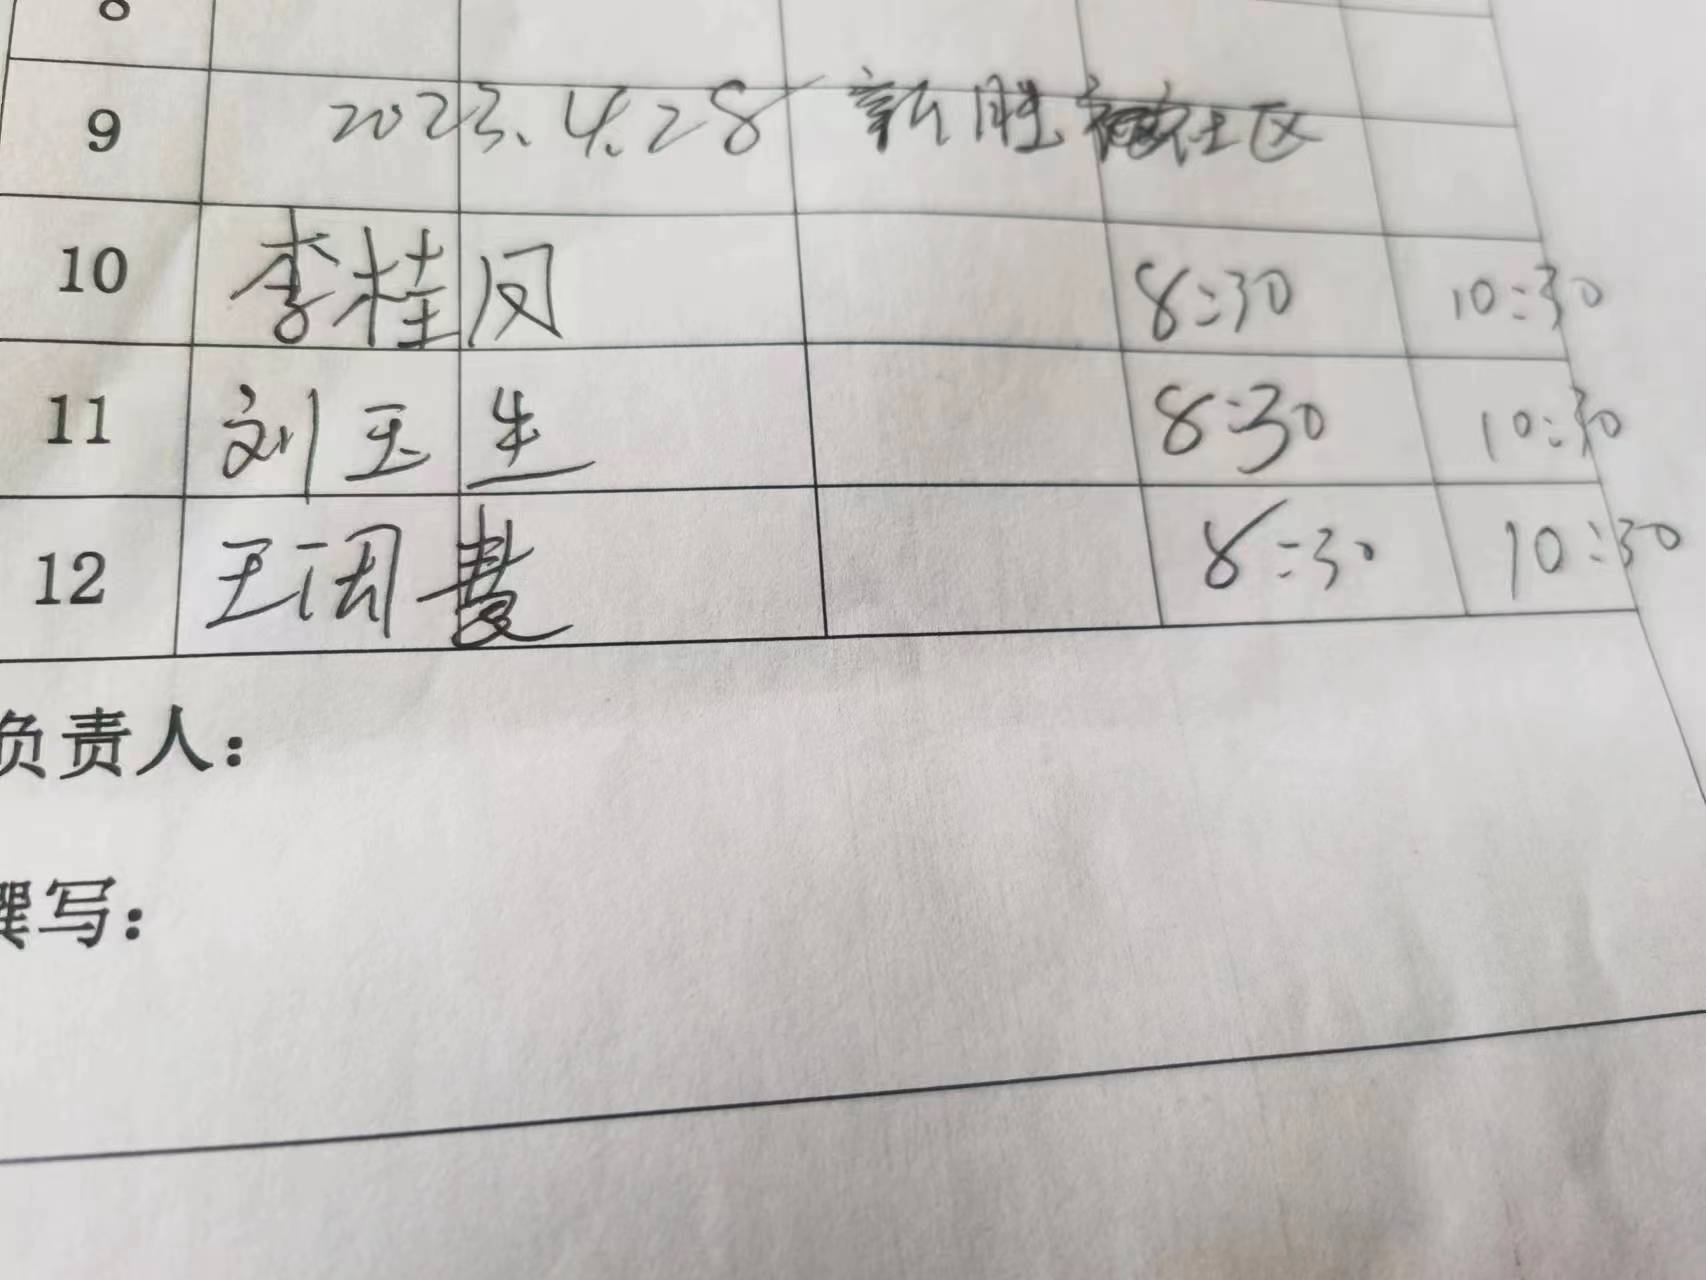 8
9 2023.4.28 新胜社区
10 李桂凤 8:30 10:30
11 刘玉生 8:30 10:30
12 王 8:30 10:30
负责人：
撰写：